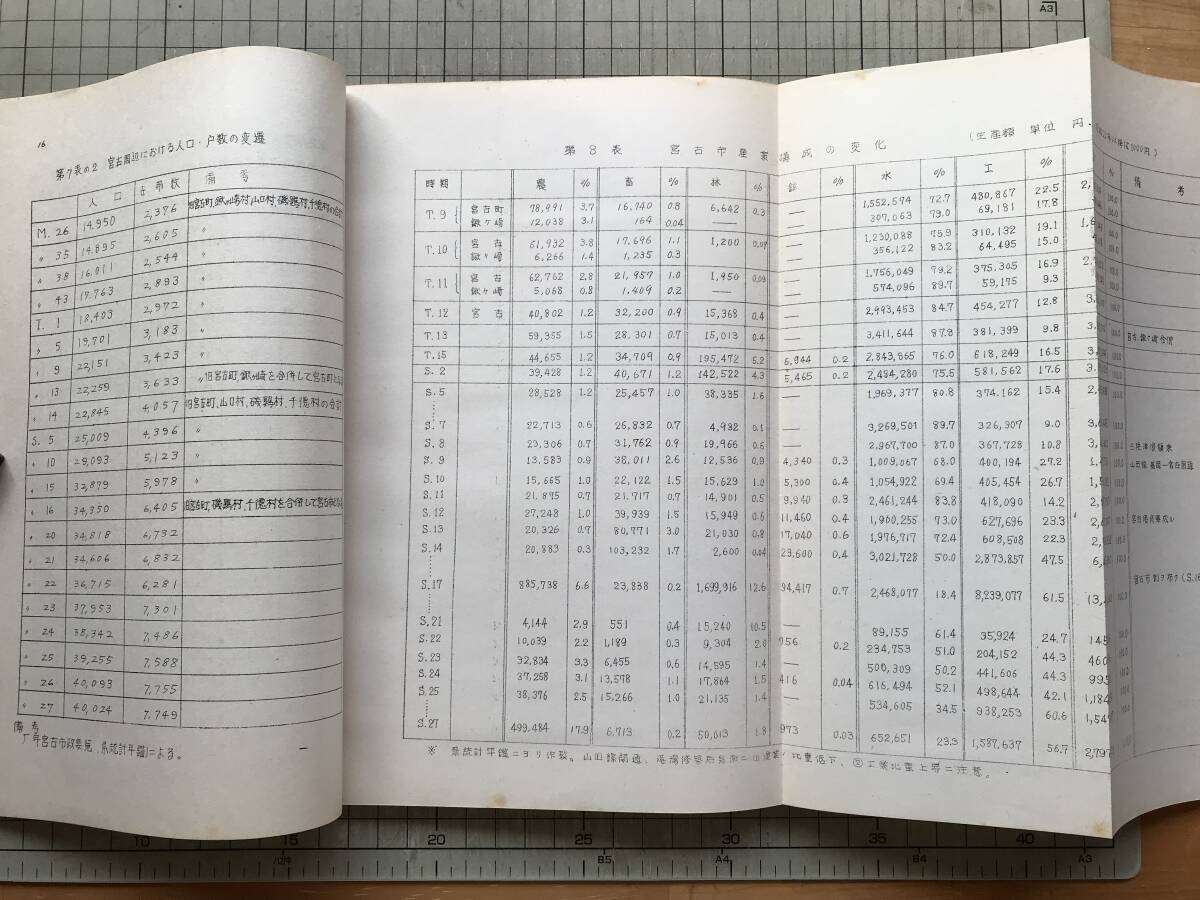 16
第7表の2 宮古周辺における人口・戸数の変遷
人口 戸数 備考
M. 26 14.950 2,376 旧宮古町,鍬ヶ崎村,山口村,磯鶏村,千徳村の合計
〃 35 14.895 2,605 〃
〃 38 16.011 2,544 〃
〃 43 17.763 2,893 〃
T. 1 18,403 2,972 〃
〃 5 19,701 3,183 〃
〃 9 22,151 3,423 〃
〃 13 22,259 3,633 〃旧宮古町,鍬ヶ崎を合併して宮古町となる
〃 14 22,845 4,057 旧宮古町,山口村,磯鶏村,千徳村の合計
S. 5 25,009 4,396 〃
〃 10 29,093 5,123 〃
〃 15 32,879 5,978 〃
〃 16 34,350 6,405 旧宮古町,磯鶏村,千徳村を合併して宮古市
〃 20 34,818 6,732
〃 21 34,606 6,832
〃 22 36,715 6,281
〃 23 37,953 7,301
〃 24 38,342 7,486
〃 25 39,255 7,588
〃 26 40,093 7,755
〃 27 40,024 7.749
備考
「年宮古市政要覧,県統計年鑑」による。
第8表 宮古市産業構成の変化 (生産額 単位 円,
時期 農 % 畜 % 林 % 鉱 % 水 % 工 % % 備考
T.9 宮古町 78,991 3.7 16,740 0.8 6,642 0.3 — 1,552,574 72.7 480,867 22.5 2, 100.0
鍬ヶ崎 12,038 3.1 164 0.04 — 307,063 79.0 69,181 17.8 100.0
T.10 宮古 61,932 3.8 17,696 1.1 1,200 0.07 — 1,230,088 75.9 310,132 19.1 100.0
鍬ヶ崎 6,266 1.4 1,235 0.3 — 356,122 83.2 64,495 15.0 100.0
T.11 宮古 62,762 2.8 21,957 1.0 1,950 0.09 — 1,756,049 79.2 375,305 16.9 2, 100.0
鍬ヶ崎 5,068 0.8 1.409 0.2 — — 574,096 89.7 59,175 9.3 100.0
T.12 宮古 40,802 1.2 32,200 0.9 15,368 0.4 — 2,993,453 84.7 454,277 12.8 3, 100.0
T.13 59,355 1.5 28,301 0.7 15,013 0.4 — 3,411,644 87.8 381,399 9.8 3, 100.0 宮古,鍬ヶ崎合併
T.15 44,655 1.2 34,709 0.9 195,472 5.2 6,944 0.2 2,843,865 76.0 618,249 16.5 3, 100.0
S.2 39,428 1.2 40,671 1.2 142,522 4.3 5,465 0.2 2,484,280 75.5 581,562 17.6 3, 100.0
S.5 28,528 1.2 25,457 1.0 38,335 1.6 — 1,969,377 80.8 374,162 15.4 2, 100.0
S.7 22,713 0.6 26,832 0.7 4,932 0.1 — 3,269,501 89.7 326,307 9.0 100.0
S.8 23,306 0.7 31,762 0.9 19,966 0.6 — 2,967,700 87.0 367,728 10.8 100.0 三陸津浪襲来
S.9 13,583 0.9 38,011 2.6 12,536 0.9 4,340 0.3 1,009,067 68.0 400,194 27.2 100.0 山田線 盛岡—宮古開通
S.10 15,665 1.0 22,122 1.5 15,629 1.0 5,300 0.4 1,054,922 69.4 405,454 26.7 100.0
S.11 21,895 0.7 21,717 0.7 14,901 0.5 9,940 0.3 2,461,244 83.8 418,090 14.2 100.0
S.12 27,248 1.0 39,939 1.5 15,949 0.6 11,460 0.4 1,900,255 73.0 627,696 23.3 100.0
S.13 20,326 0.7 80,771 3.0 21,030 0.8 17,040 0.6 1,976,717 72.4 608,508 22.3 100.0
S.14 20,883 0.3 103,232 1.7 2,600 0.04 23,600 0.4 3,021,728 50.0 2,873,857 47.5 100.0
S.17 885,738 6.6 23,838 0.2 1,699,916 12.6 94,417 0.7 2,468,077 18.4 8,239,077 61.5 (3, 100.0
S.21 4,144 2.9 551 0.4 15,240 10.5 — 89,155 61.4 35,924 24.7 100.0
S.22 10,039 2.2 1,189 0.3 9,304 2.0 956 0.2 234,753 51.0 204,152 44.3 460 100.0
S.23 32,834 3.3 6,455 0.6 14,595 1.4 — 500,309 50.2 441,606 44.3 995 100.0
S.24 37,258 3.1 13,578 1.1 17,864 1.5 416 0.04 616,494 52.1 498,644 42.1 1,184 100.0
S.25 38,376 2.5 15,266 1.0 21,135 1.4 — 534,605 34.5 938,253 60.6 1,54 100.0
S.27 499,484 17.9 6,713 0.2 50,013 1.8 973 0.03 652,651 23.3 1,587,637 56.7 2,797
※ 県統計年鑑ニヨリ作製。
10 15 20 25 30 35 40
B5 A4 B4 A3
A3